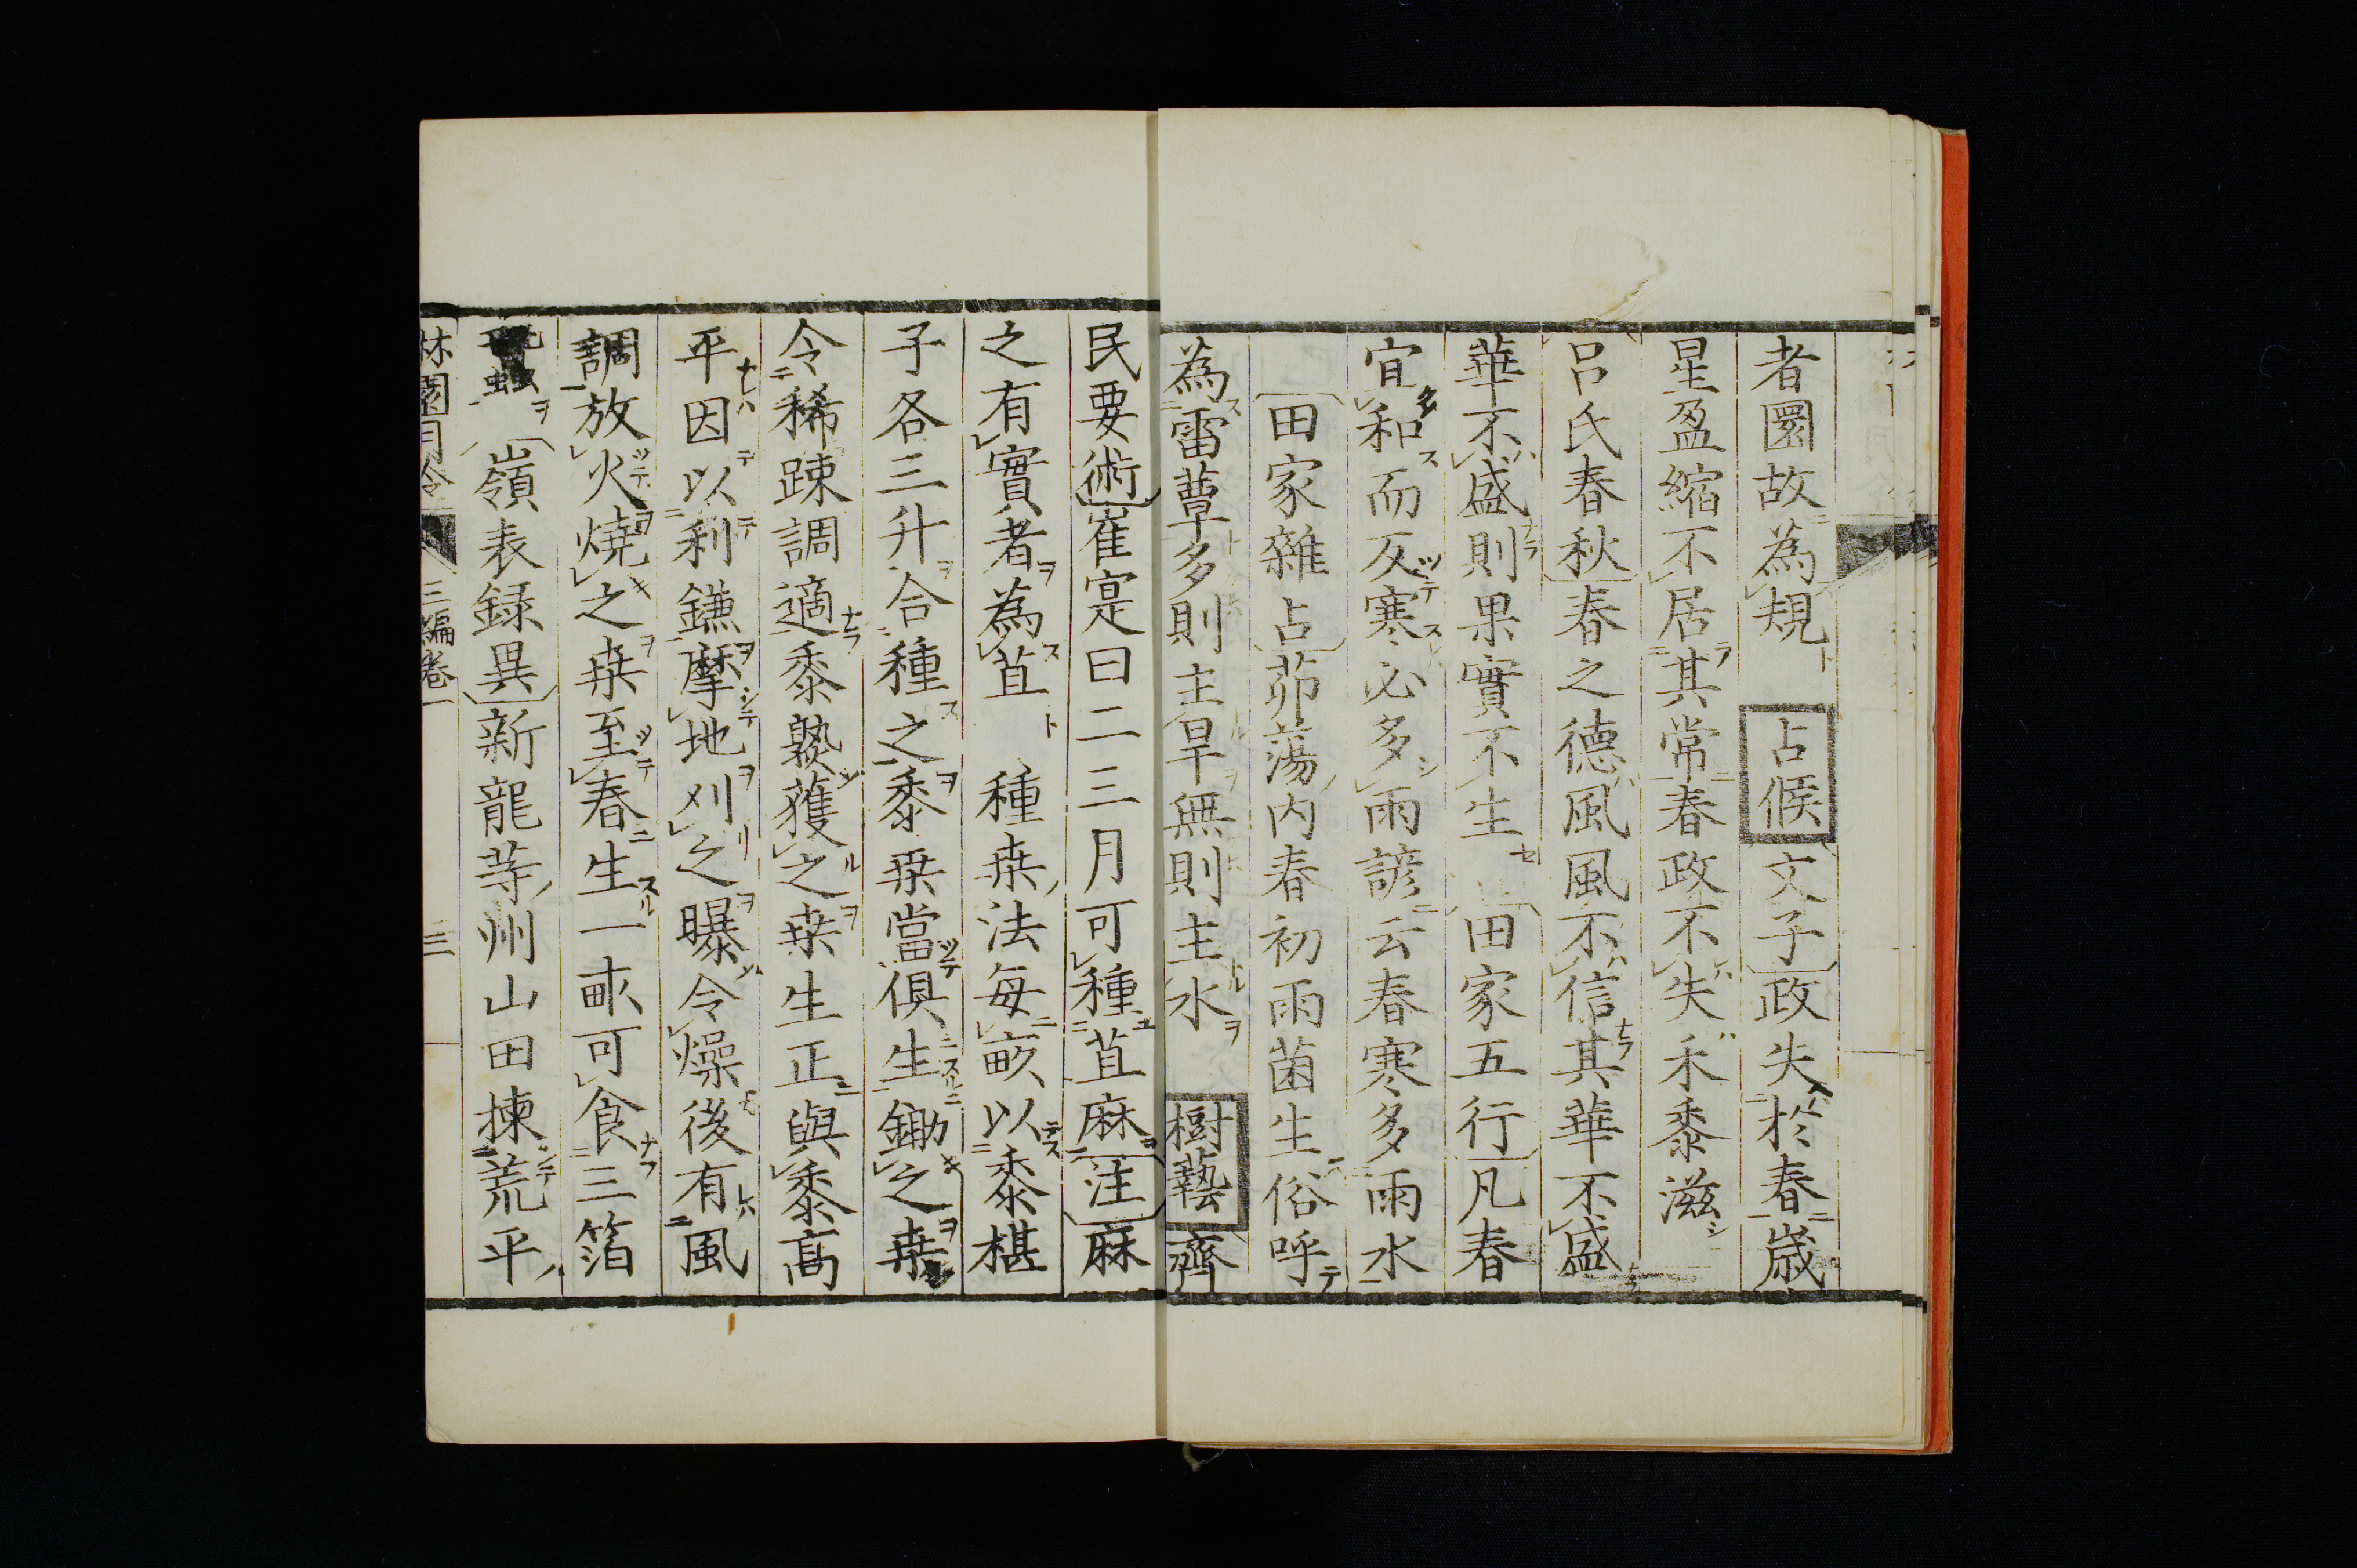 者圜故為規　占候　文子　政失於春歳
星盈縮不居其常春政不失禾黍滋
呂氏春秋　春之德風風不信其華不盛
華不盛則果實不生　田家五行　凡春
宜和而反寒必多雨諺云春寒多雨水
田家雜占　茆蕩内春初雨菌生俗呼
為雷蕈多則主旱無則主水　樹藝　齊
民要術　崔寔曰二三月可種苴麻　注　麻
之有實者為苴　種桒法毎畝以黍椹
子各三升合種之黍桒當倶生鋤之桒
令稀踈調適黍熟穫之桒生正與黍髙
平因以利鎌摩地刈之曝令燥後有風
調放火燒之桒至春生一畝可食三箔
蝅　嶺表録異　新龍等州山田揀荒平
林園月令　三編卷一　三